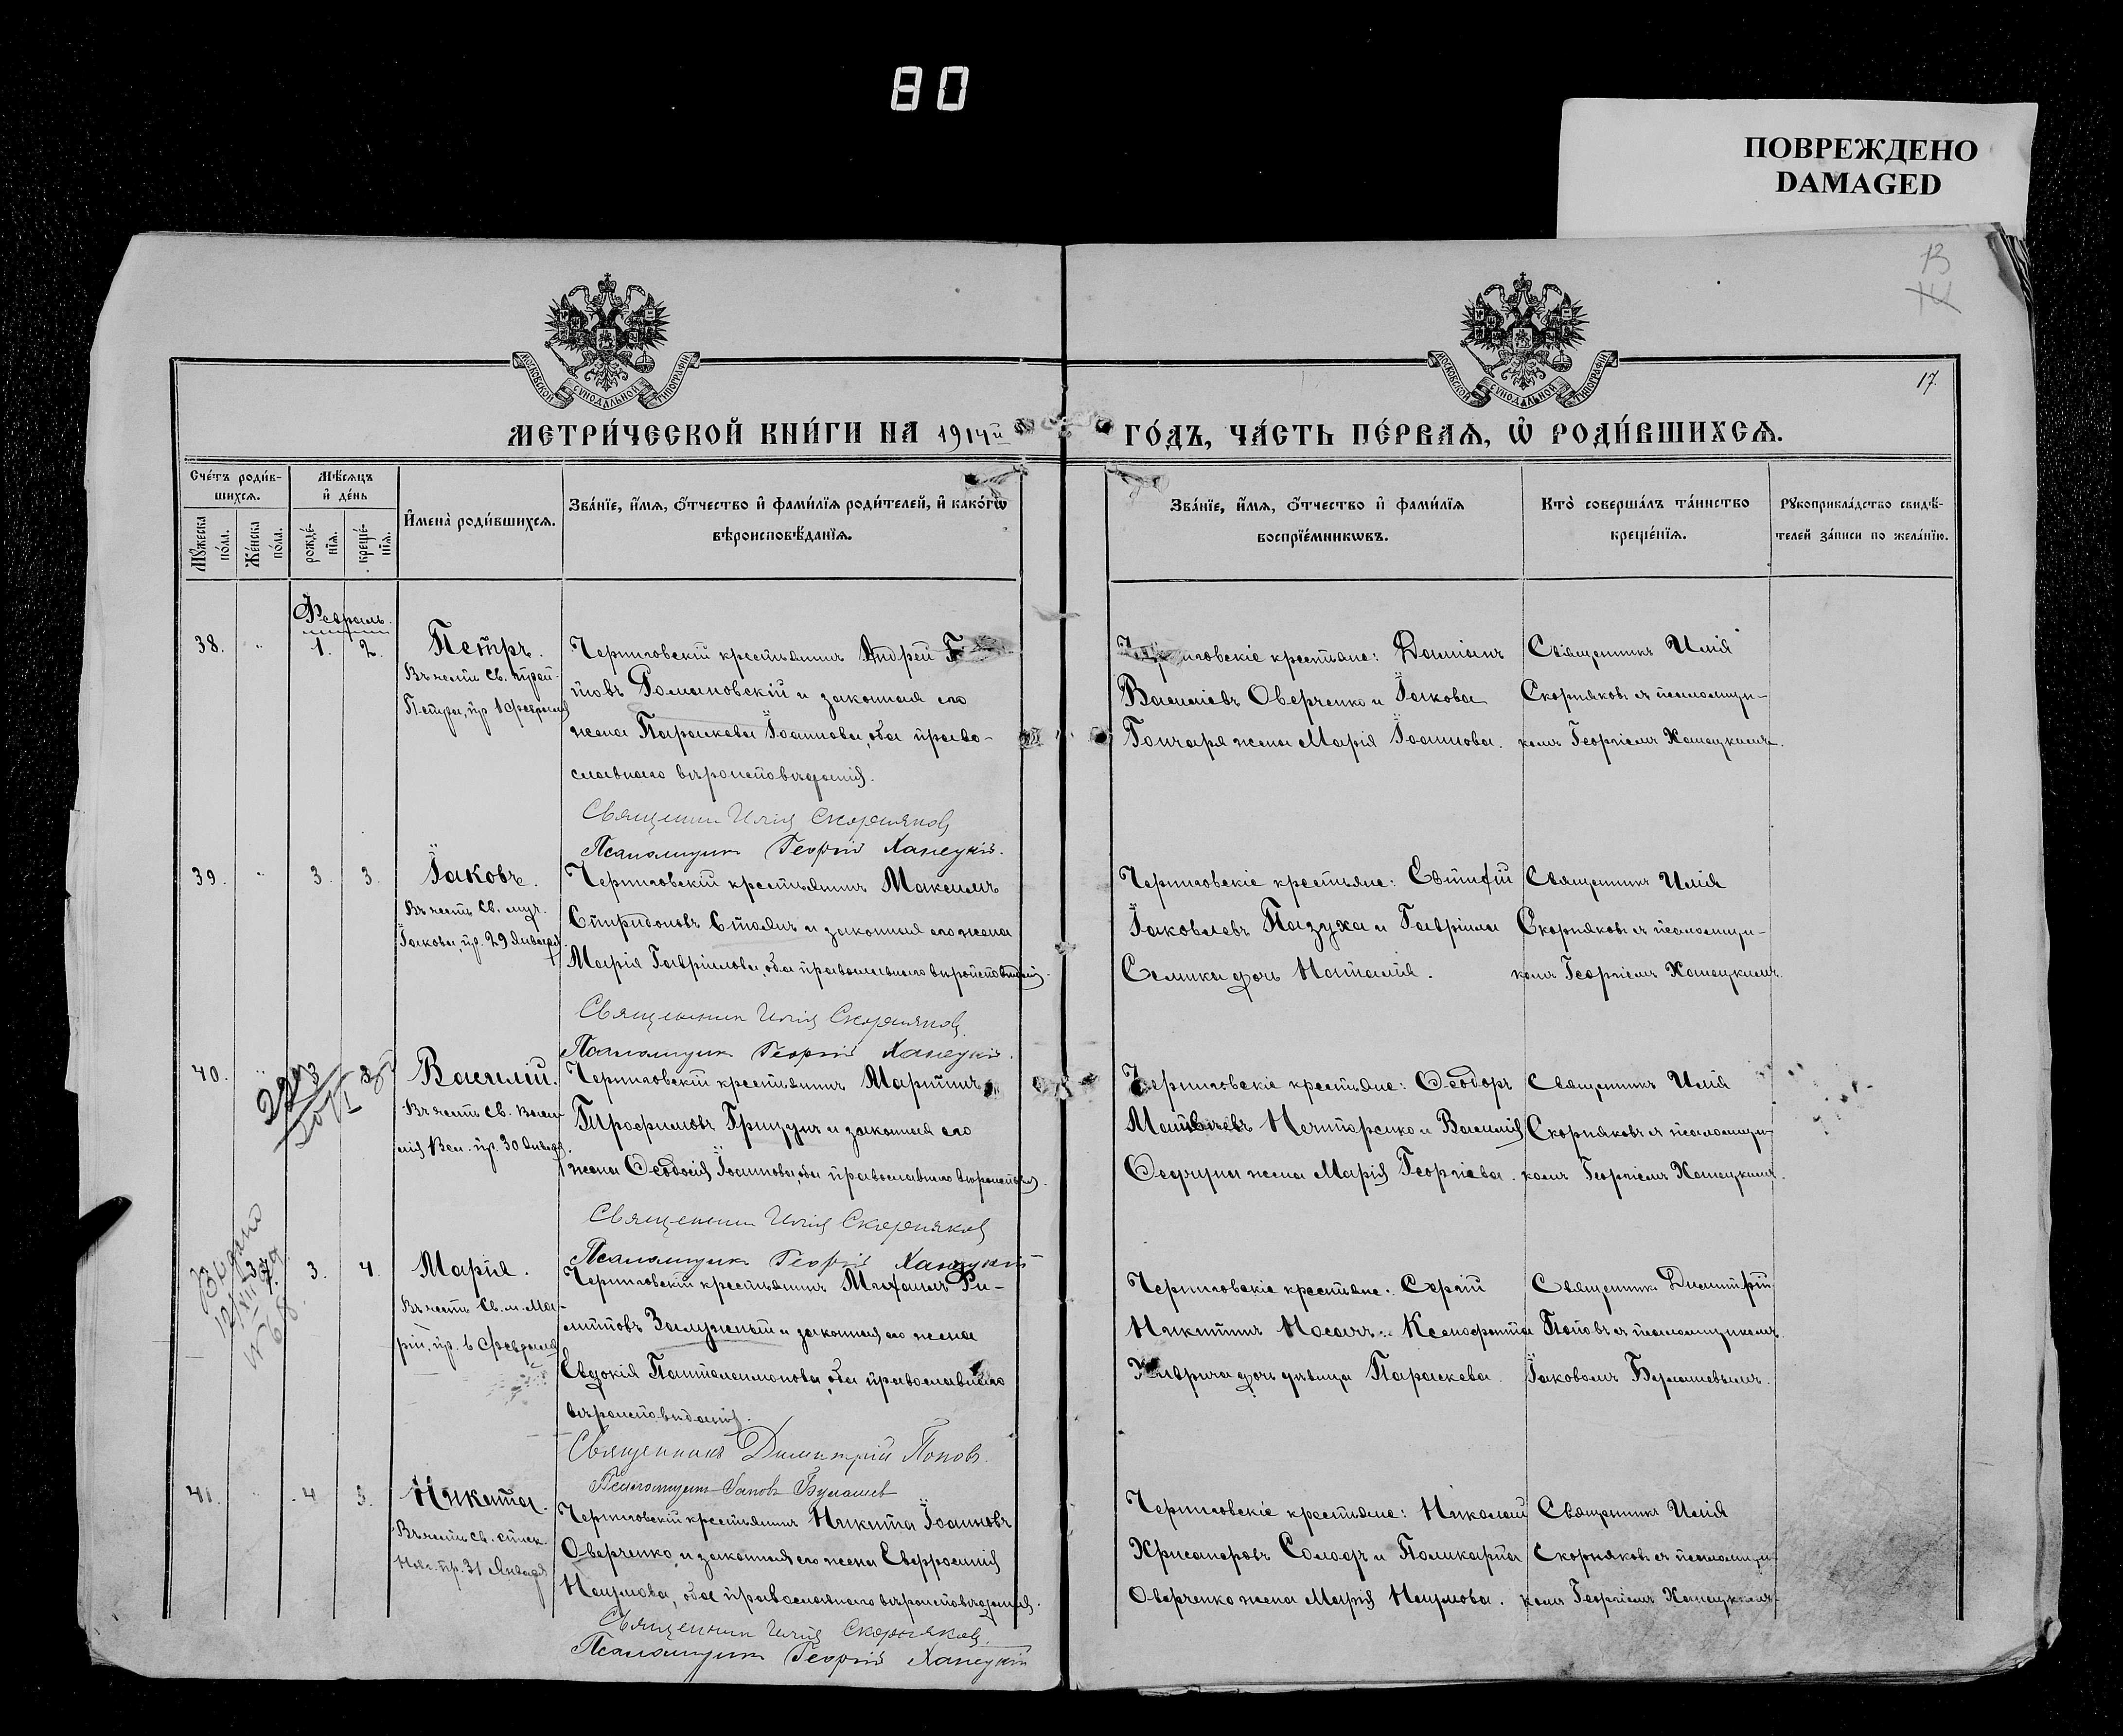 80
ПОВРЕЖДЕНО
DAMAGED
13
17.
МОСКОВСКОЙ СУНОДАЛЬНОЙ ТИПОГРАФІИ
МОСКОВСКОЙ СУНОДАЛЬНОЙ ТИПОГРАФІИ
МЕТРИ́ЧЕСКОЙ КНИ́ГИ НА 1914й
ГО́ДЪ, ЧА́СТЬ ПЕ́РВАѦ, Ѡ҆ РОДИ́ВШИХСѦ.
Сче́тъ роди́в-
шихсѧ.
Мѣ́сѧцъ
и҆ де́нь
Мꙋ́жеска
по́ла.
Же́нска
по́ла.
рожде́-
нїѧ.
креще́-
нїѧ.
И҆мена̀ роди́вшихсѧ.
Зва́нїе, и҆́мѧ, ѻ҆́тчество и҆ фами́лїѧ роди́телей, и҆ како́гѡ
вѣроисповѣ́данїѧ.
Зва́нїе, и҆́мѧ, ѻ҆́тчество и҆ фами́лїѧ
воспрїе́мникѡвъ.
Кто̀ соверша́лъ та́инство
креще́нїѧ.
Рꙋкоприкла́дство свидѣ́-
телей за́писи по жела́нїю.
Февраль.
38. " 1. 2. Петръ.
Въ честь св.
Петра, пр. 1 февраля
Черниговскій крестьянинъ Андрей
Романовскій и законная его
жена Параскева Іоаннова, оба право-
славнаго вѣроисповѣданія.
Священник Илия Скорняков
Псаломщик Георгій Ханецкій.
Черниговскіе крестьяне: Даміанъ
Василіевъ Оверченко и Іакова
Гончаря жена Марія Іоаннова.
Священникъ Илія
Скорняковъ съ псаломщи-
комъ Георгіемъ Ханецкимъ.
39. " 3. 3. Іаковъ.
Въ честь св. муч.
Іакова, пр. 29 Января.
Черниговскій крестьянинъ Максимъ
Спиридоновъ Стоянъ и законная его жена
Марія Гавріилова, оба православнаго вѣроисповѣданія.
Священник Илия Скорняков.
Псаломщик Георгій Ханецкій.
Черниговскіе крестьяне: Евтихій
Іаковлевъ Пазуха и Гавріила
Семика дочь Наталія.
Священникъ Илія
Скорняковъ съ псаломщи-
комъ Георгіемъ Ханецкимъ.
40. " 3 Василій.
Въ честь св. Васи-
лія Вел. пр. 30 Января.
Черниговскій крестьянинъ Мартинъ
Трофимовъ Грицунъ и законная его
жена Ѳеодосія Іоаннова, оба православнаго вѣроисповѣд.
Священник Илия Скорняков
Псаломщик Георгій Ханецкій
Черниговскіе крестьяне: Ѳеодоръ
Матвѣевъ Нечипоренко и Василія
жена Марія Георгіева.
Священникъ Илія
Скорняковъ съ псаломщи-
комъ Георгіемъ Ханецкимъ.
Выдано
№ 68.
37. 3. 4. Марія.
Въ честь св. м. Ма-
ріи, пр. 6 февраля
Черниговскій крестьянинъ Михаилъ Фи-
липповъ Залужный и законная его жена
Евдокія Пантелеимонова, оба православнаго
вѣроисповѣданія.
Священникъ Димитрій Поповъ.
Псаломщикъ Іаковъ Бумашев
Черниговскіе крестьяне: Сергій
Никитинъ Носачъ и Ксенофонта
дочь дѣвица Параскева.
Священникъ Димитрій
Поповъ съ псаломщикомъ
Іаковомъ Бумашевымъ.
41. " 4 5. Никита.
Въ честь св.
пр. 31 Января
Черниговскій крестьянинъ Никита Іоанновъ
Оверченко и законная его жена Евфросинія
Наумова, оба православнаго вѣроисповѣданія.
Священник Илия Скорняков.
Псаломщик Георгій Ханецкій
Черниговскіе крестьяне: Николай
Хрисанфовъ Солодъ и Поликарпа
Оверченко жена Марія Наумова.
Священникъ Илія
Скорняковъ съ псаломщи-
комъ Георгіемъ Ханецкимъ.